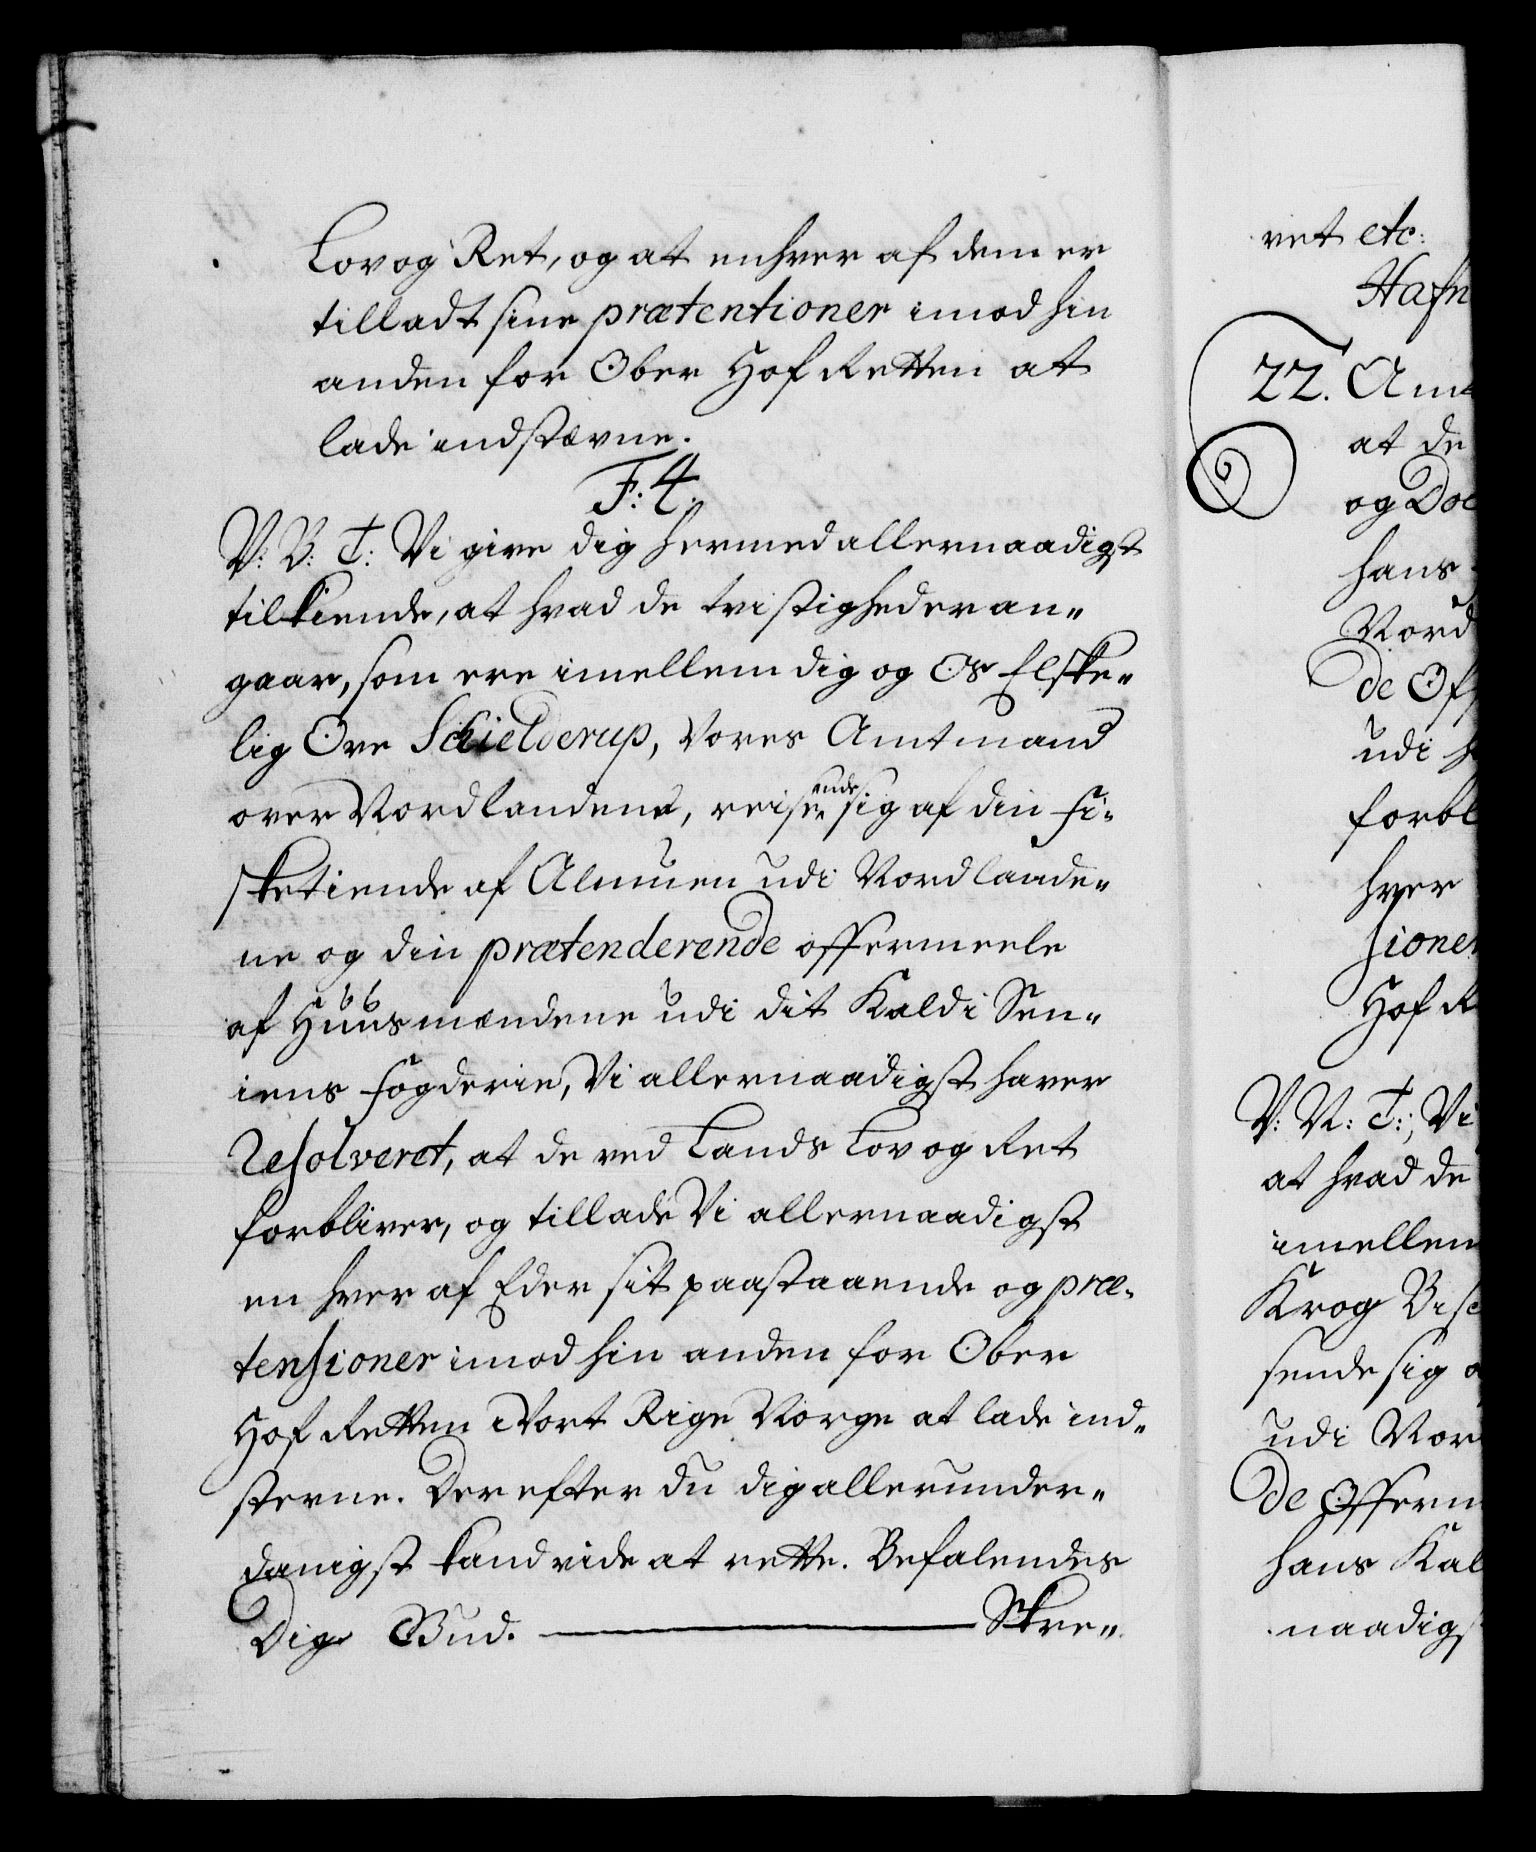 Lov og Ret, og at enhver af dem er
tilladt sine prætentioner imod hin
anden for Ober Hof Retten at
lade indstævne.
F: 4.
V: B: T: Vi give dig hermed allernaadigst
tilkiende, at hvad de tvistigheder an„
gaar, som ere imellem dig og Os Elske„
lig Ove Schielderup, Vores Amtmand
over Nordlandene, reisende sig af din Fi„
sketiende af Almuen udi Nordlande„
ne og din prætenderende offermeele
af Huusmændene udi dit Kald i Sen„
iens Fogderie, Vi allernaadigst haver
Resolveret, at de ved Lands Lov og Ret
forbliver, og tillade Vi allernaadigst
en hver af Eder sit paastaaende og præ„
tensioner imod hin anden for Ober
Hof Retten i Vort Rige Norge at lade ind„
stevne. Derefter du dig allerunder„
danigst kand vide at rette. Befalendes
Dig Gud. Skre„
vet etc:
Hafn
22. Amt
at de
og Doc
hans
Nord
de Off
udi h
forbl
hver
sioner
Hof R
V: N: T:, Vi
at hvad de
imellem
Krog Bisc
sende sig a
udi Nor
de Offerm
hans Kal
naadigs